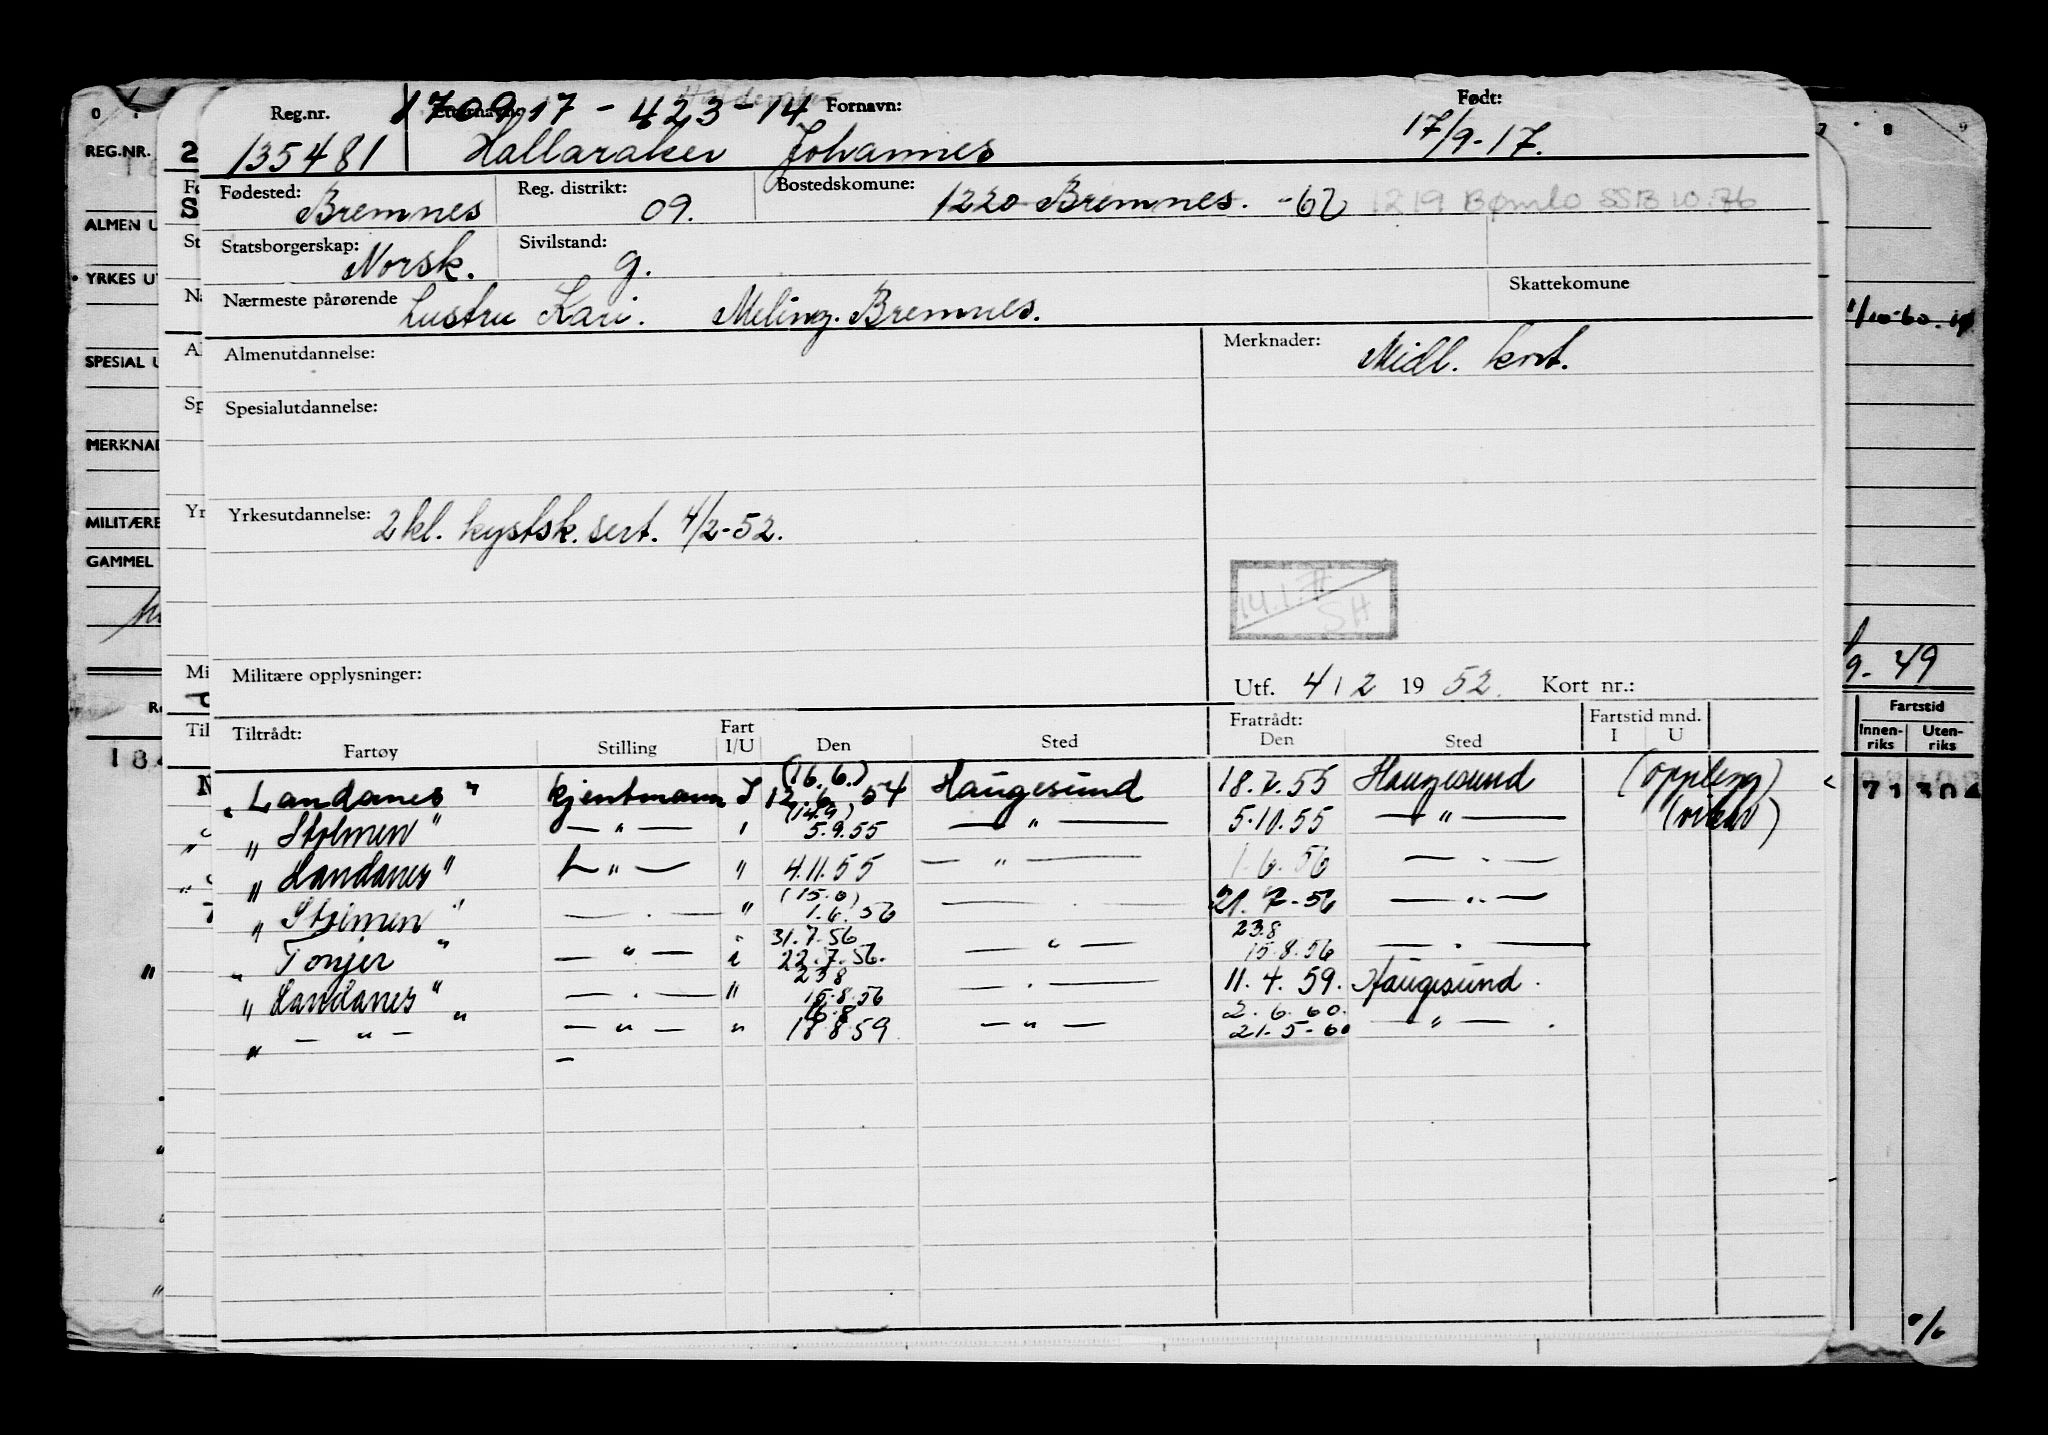 Reg.nr. 170917 - 423 - 14 Fornavn: Født:
135481 Hallaraker Johannes 17/9-17.
Fødested: Bremnes Reg. distrikt: 09. Bostedskomune: 1220 Bremnes. -62 1219 Bømlo SSB 10.76
Statsborgerskap: Norsk. Sivilstand: g.
Nærmeste pårørende Hustru Kari. Meling. Bremnes. Skattekomune
Almenutdannelse: Merknader: Midl. kort.
Spesialutdannelse:
Yrkesutdannelse: 2 kl. kystsk. sert. 4/2-52.
SH
Militære opplysninger: Utf. 4 / 2 19 52. Kort nr.:
Tiltrådt: Fart Fratrådt: Fartstid mnd.
Fartøy Stilling I/U Den Sted Den Sted I U
(16.6.)
"Landanes" kjentmann I 12.6.54 Haugesund 18.7.55 Haugesund (oppleng)
(14.9)
"Stolmen" — " — " 5.9.55 — " — 5.10.55 — " — (vikar)
"Landanes" — " — " 4.11.55 — " — 1.6.56 — " —
(15.6)
"Stolmen" — " — " 1.6.56 — " — 21.7-56 — " —
31.7.56 23.8
"Tonjer" — " — " 22.7.56. — " — 15.8.56 — " —
23 8
"Landanes" — " — " 15.8.56 — " — 11.4.59. Haugesund.
16.8 2.6.60.
" — " — — " — " 18 8.59. — " — 21.5-60 — " —
REG.NR.
ALMEN U
YRKES UT
SPESIAL U
MERKNAD
MILITÆRE
GAMMEL
1/10-60.
9-49
Fartstid
Innen- Uten-
riks riks